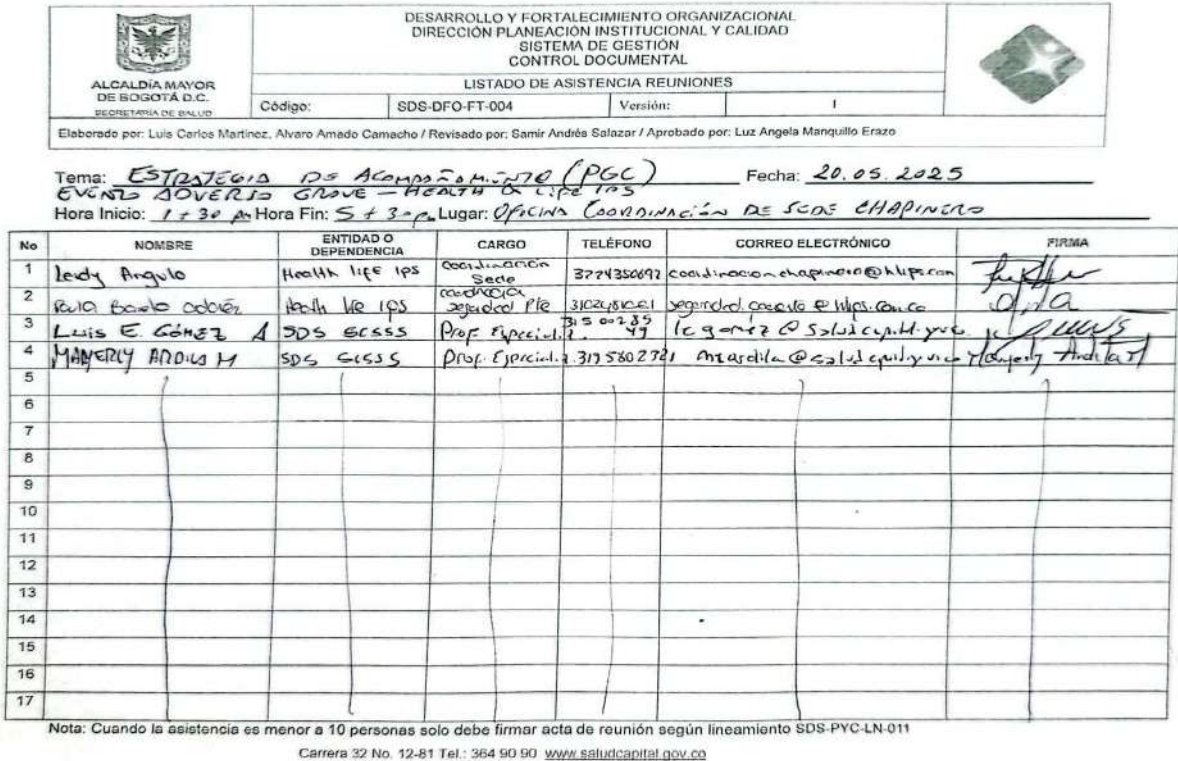 ALCALDÍA MAYOR
DE BOGOTÁ D.C.
SECRETARÍA DE SALUD
DESARROLLO Y FORTALECIMIENTO ORGANIZACIONAL
DIRECCIÓN PLANEACIÓN INSTITUCIONAL Y CALIDAD
SISTEMA DE GESTIÓN
CONTROL DOCUMENTAL
LISTADO DE ASISTENCIA REUNIONES
Código: SDS-DFO-FT-004 Versión: 1
Elaborado por: Luis Carlos Martínez, Alvaro Amado Camacho / Revisado por: Samir Andrés Salazar / Aprobado por: Luz Angela Manquillo Erazo
Tema: ESTRATEGIA DE ACOMPAÑAMIENTO (PGC) Fecha: 20.05.2025
EVENTO ADVERSO GRAVE - HEALTH & LIFE IPS
Hora Inicio: 1+30 pm Hora Fin: 5+30 pm Lugar: OFICINA COORDINACIÓN DE SEDE CHAPINERO
No NOMBRE ENTIDAD O DEPENDENCIA CARGO TELÉFONO CORREO ELECTRÓNICO FIRMA
1 Leidy Angulo Health life IPS Coordinación Sede coordinacionchapinero@hlips.com
2 Health life IPS
3 LUIS E. GÓMEZ A SDS Prof. Especial.
4 MAYERLY ARDILA M SDS Prof. Especial. Mayerly Ardila M
5
6
7
8
9
10
11
12
13
14
15
16
17
Nota: Cuando la asistencia es menor a 10 personas solo debe firmar acta de reunión según lineamiento SDS-PYC-LN-011
Carrera 32 No. 12-81 Tel.: 364 90 90 www.saludcapital.gov.co